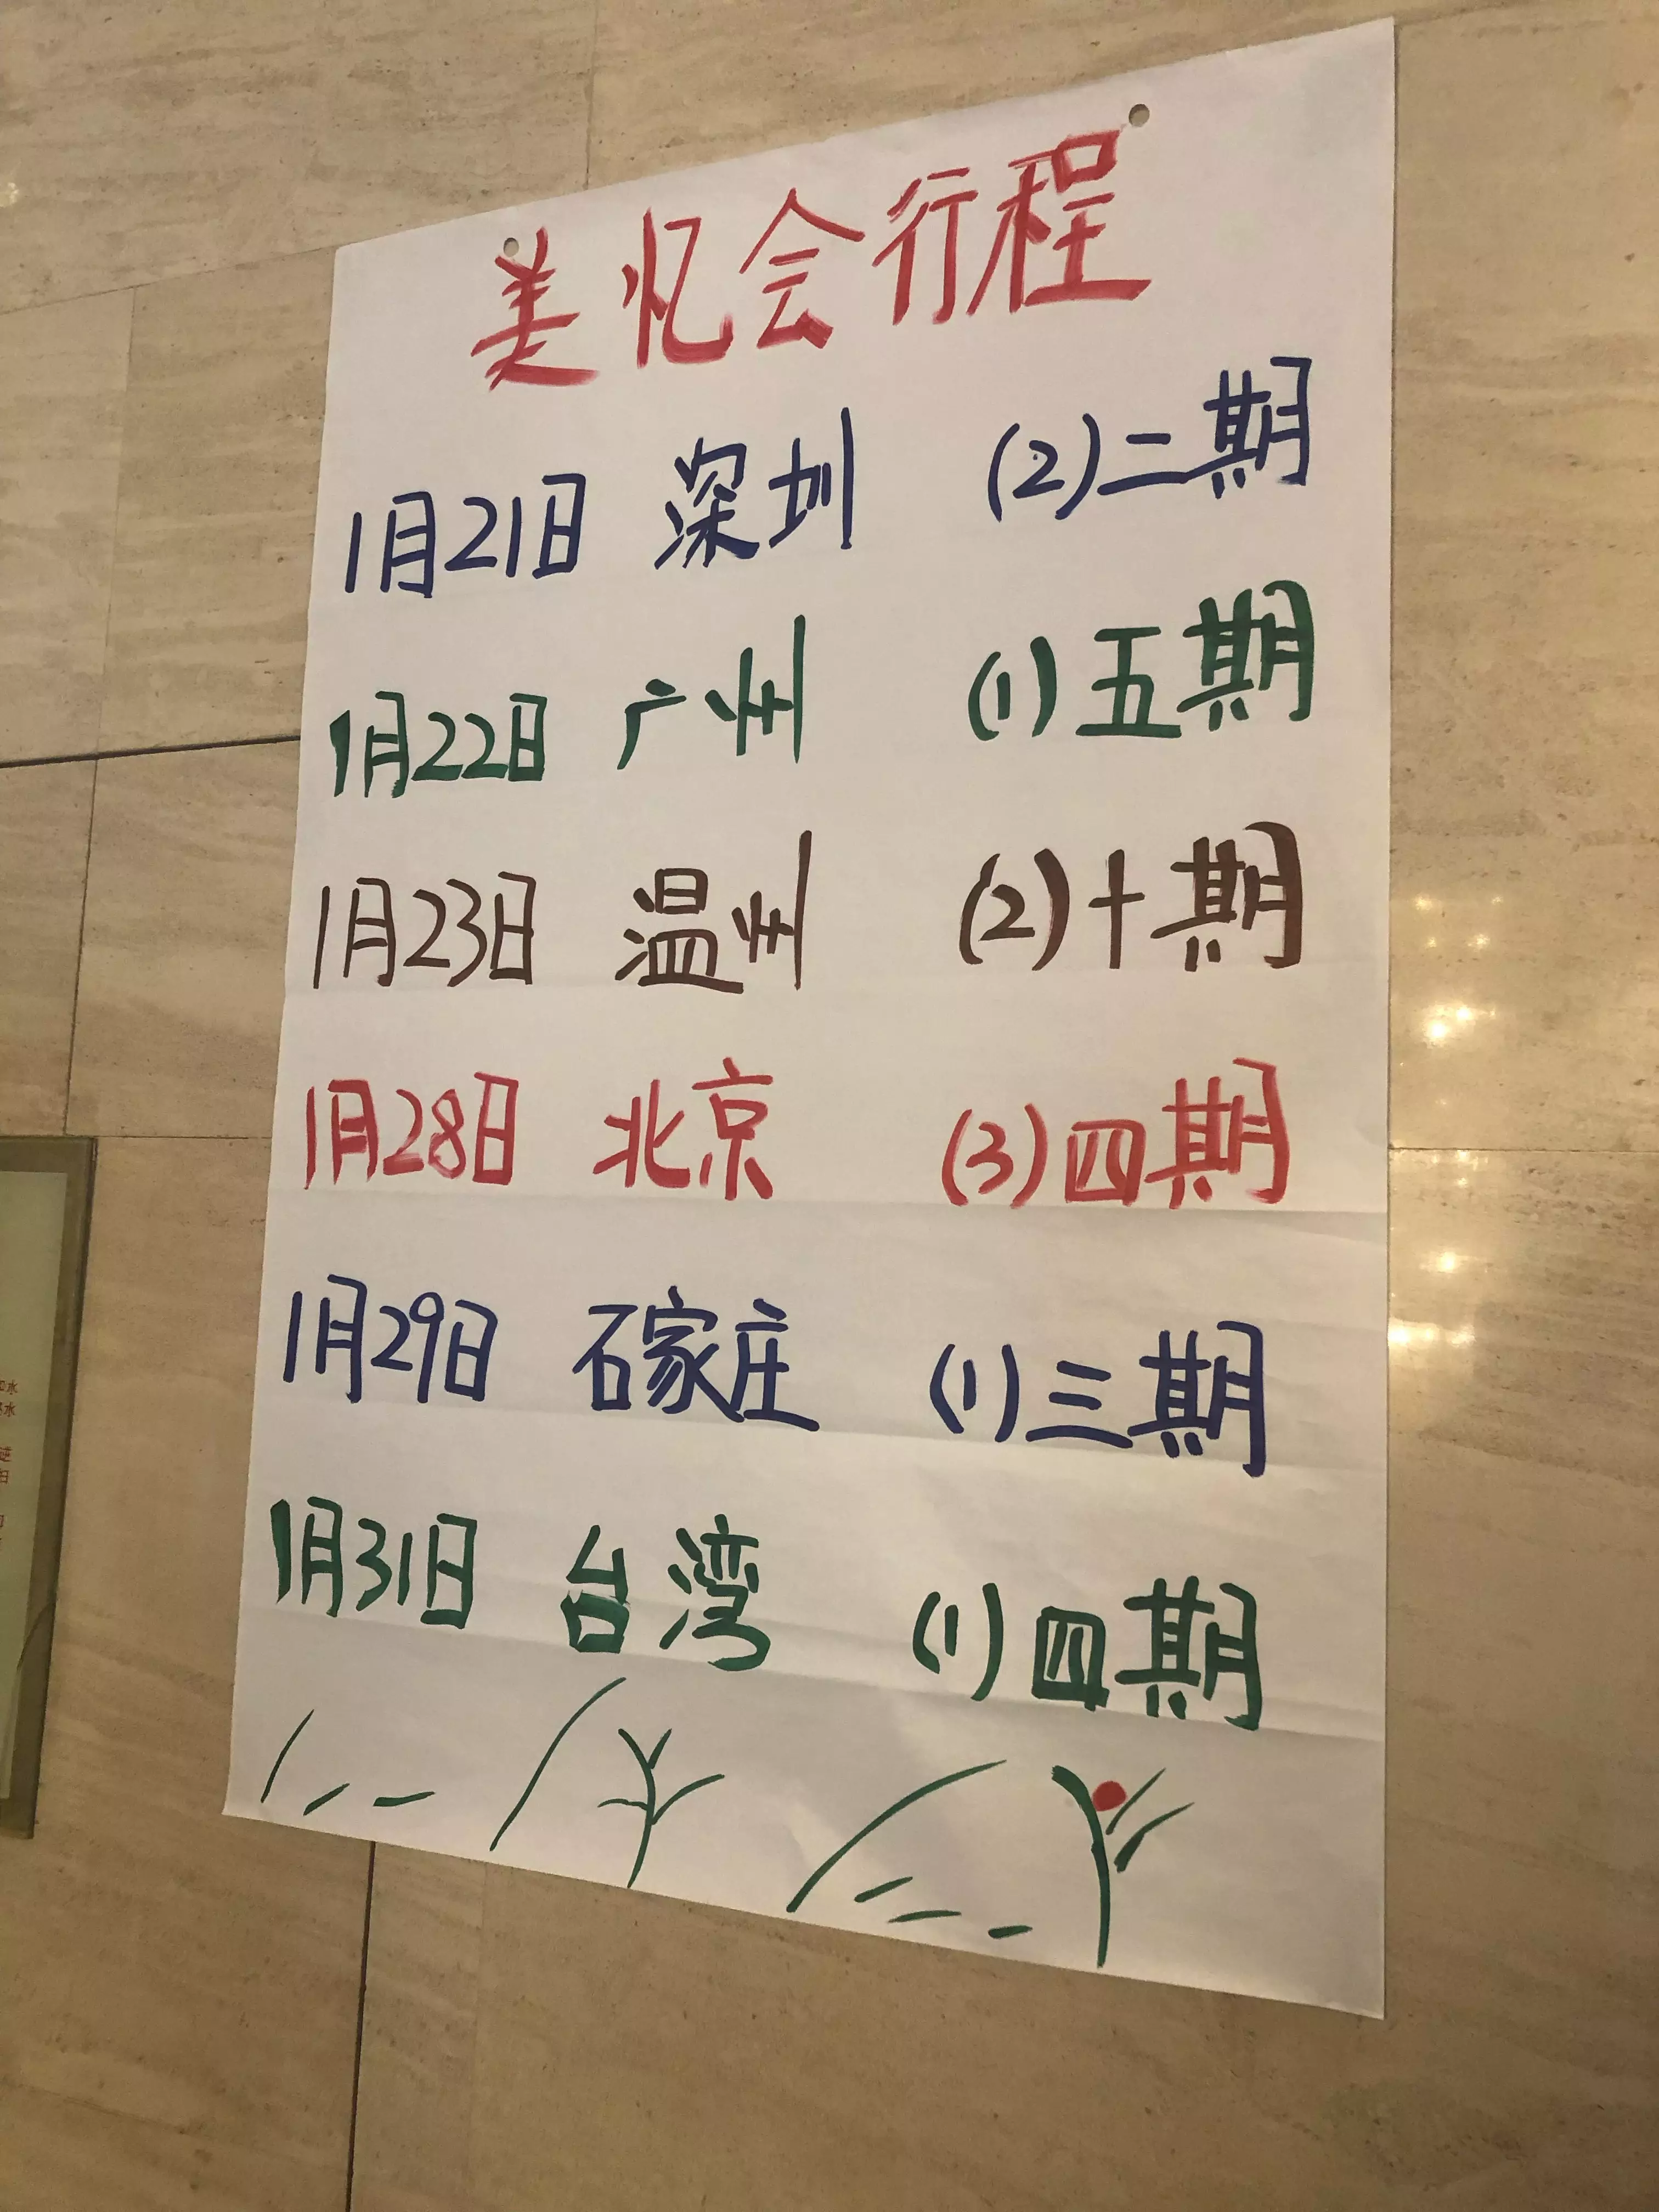 美忆会行程
1月21日 深圳 (2)二期
1月22日 广州 (1)五期
1月23日 温州 (2)十期
1月28日 北京 (3)四期
1月29日 石家庄 (1)三期
1月31日 台湾 (1)四期